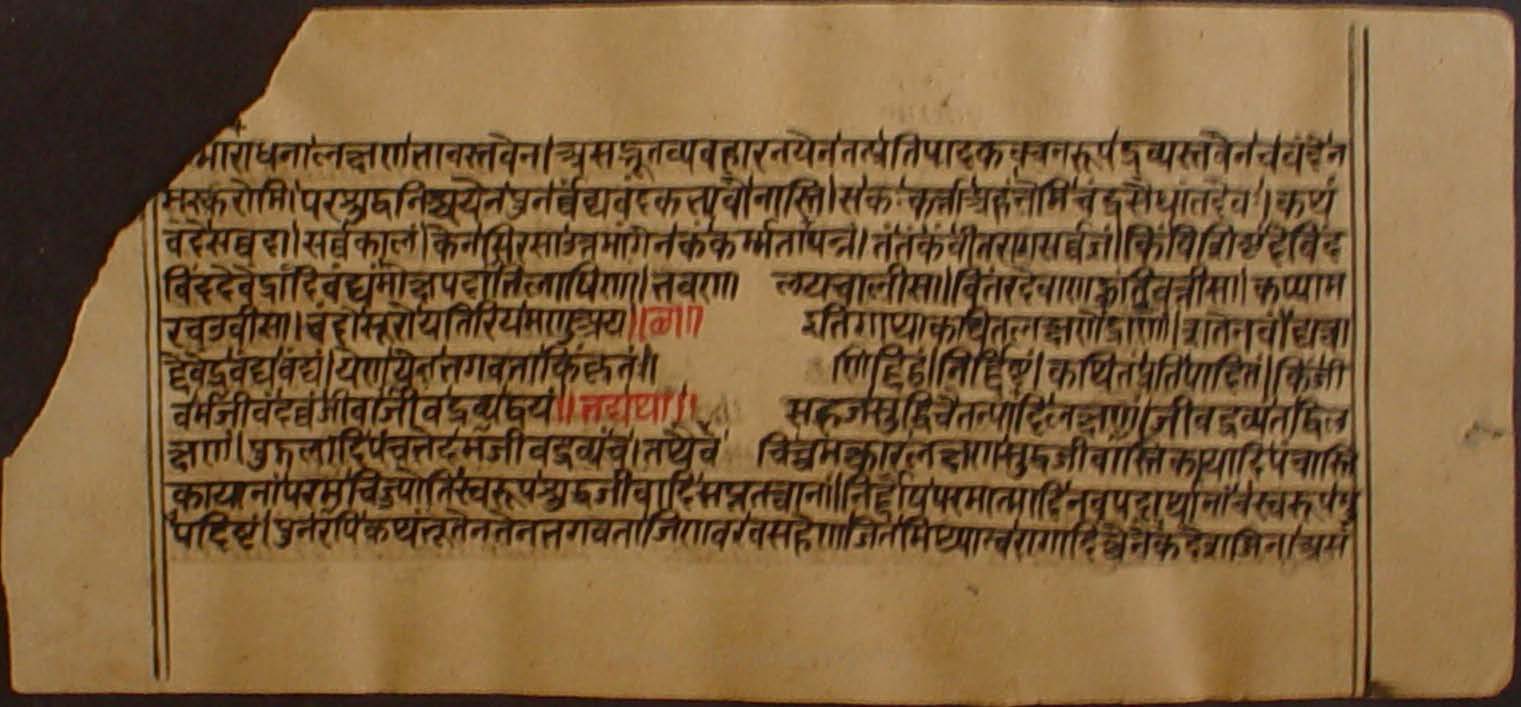 माराधनालक्षणभावस्तवेन।असद्भूतव्यवहारनयेन तत्प्रतिपादकवचनरूपद्रव्यस्तवेन च वंदे न
मस्करोमि।परशुद्धनिश्चयेन पुनर्वंद्यवंदकभावो नास्ति।स कः कर्त्ता अहं नेमिचंद्रसैधांतदेवः।कथं
वंदे सव्वदा।सर्वकालं।केन सिरसा उत्तमांगेन कं कर्म्मतापन्नं।तं तं कं वीतरागसर्वज्ञं।किंविशिष्टं देविंद
विंदवंदं देवेंद्रादिवंद्यं मोक्षपदाभिलाषिण॥भवणा लयचालीसा॥विंतरदेवाण हुंति बत्तीसा।कप्पाम
रचउवीसा।चंदो सूरो य तिरियमाणुअय॥छ॥ इति गाथाकथितलक्षणेंद्राणां।शतेन वंद्यत्वा
द्देवेंद्रवंद्यवंद्यं।येण येन भगवता किं कृतं॥ णिद्दिट्ठं।निर्द्दिष्टं।कथितं प्रतिपादितं।किं जी
वमजीवं दव्वं जीवाजीवद्रव्यद्वयं॥तद्यथा॥ सहजसुद्धचैतन्यादिलक्षणं।जीवद्रव्यं तद्विल
क्षणं।पुद्गलादिपंचभेदमजीवद्रव्यं च।तथैव चिच्चमत्कारलक्षणसुद्धजीवास्तिकायादिपंचास्ति
कायानां परमचिज्ज्योतिस्वरूपशुद्धजीवादिसप्ततत्वानां।निर्द्दोषपरमात्मादिनवपदार्थानां च स्वरूपमु
पदिष्टं।पुनरपि कथंभूतेन तेन भगवता जिणवरवसहेण जितमिथ्यात्वरागादित्वेनैकदेशजिना असं